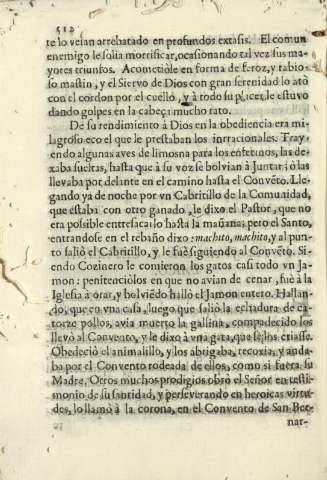 512
te lo veían arrebatado en profundos extasis. El comun
enemigo le solia mortificar, ocasionando tal vez sus ma-
yores triunfos. Acometióle en forma de feroz, y rabio-
so mastin, y el Siervo de Dios con gran serenidad lo atò
con el cordon por el cuello, y à todo su placer, le estuvo
dando golpes en la cabeça mucho rato.
De su rendimiento à Dios en la obediencia era mi-
lagroso eco el que le prestaban los irracionales. Tray-
endo algunas aves de limosna para los enfermos, las de-
xaba sueltas, hasta que à su voz se bolvian à Juntar: ò las
llevaba por delante en el camino hasta el Convẽto. Lle-
gando yà de noche por vn Cabritillo de la Comunidad,
que estaba con otro ganado, le dixo el Pastor, que no
era posible entresacarlo hasta la mañana; pero el Santo,
entrandose en el rebaño dixo: machito, machito, y al pun-
to saliò el Cabritillo, y le fuè siguiendo al Convẽto. Si-
endo Cozinero le comieron los gatos casi todo vn Ja-
mon: penitenciòlos en que no avian de cenar, fuè à la
Iglesia à orar, y bolviẽdo hallò el Jamon entero. Hallan-
do, que en vna casa, luego que saliò la echadura de ca-
torze pollos, avia muerto la gallina, compadecido los
llevò al Convento, y le dixo à vna gata, que se los criasse.
Obedeciò el animalillo, y los abrigaba, recoxia, y anda-
ba por el Convento rodeada de ellos, como si fuera su
Madre. Otros muchos prodigios obrò el Señor en testi-
monio de su santidad, y perseverando en heroicas virtu-
des, lo llamò à la corona, en el Convento de San Ber-
nar-